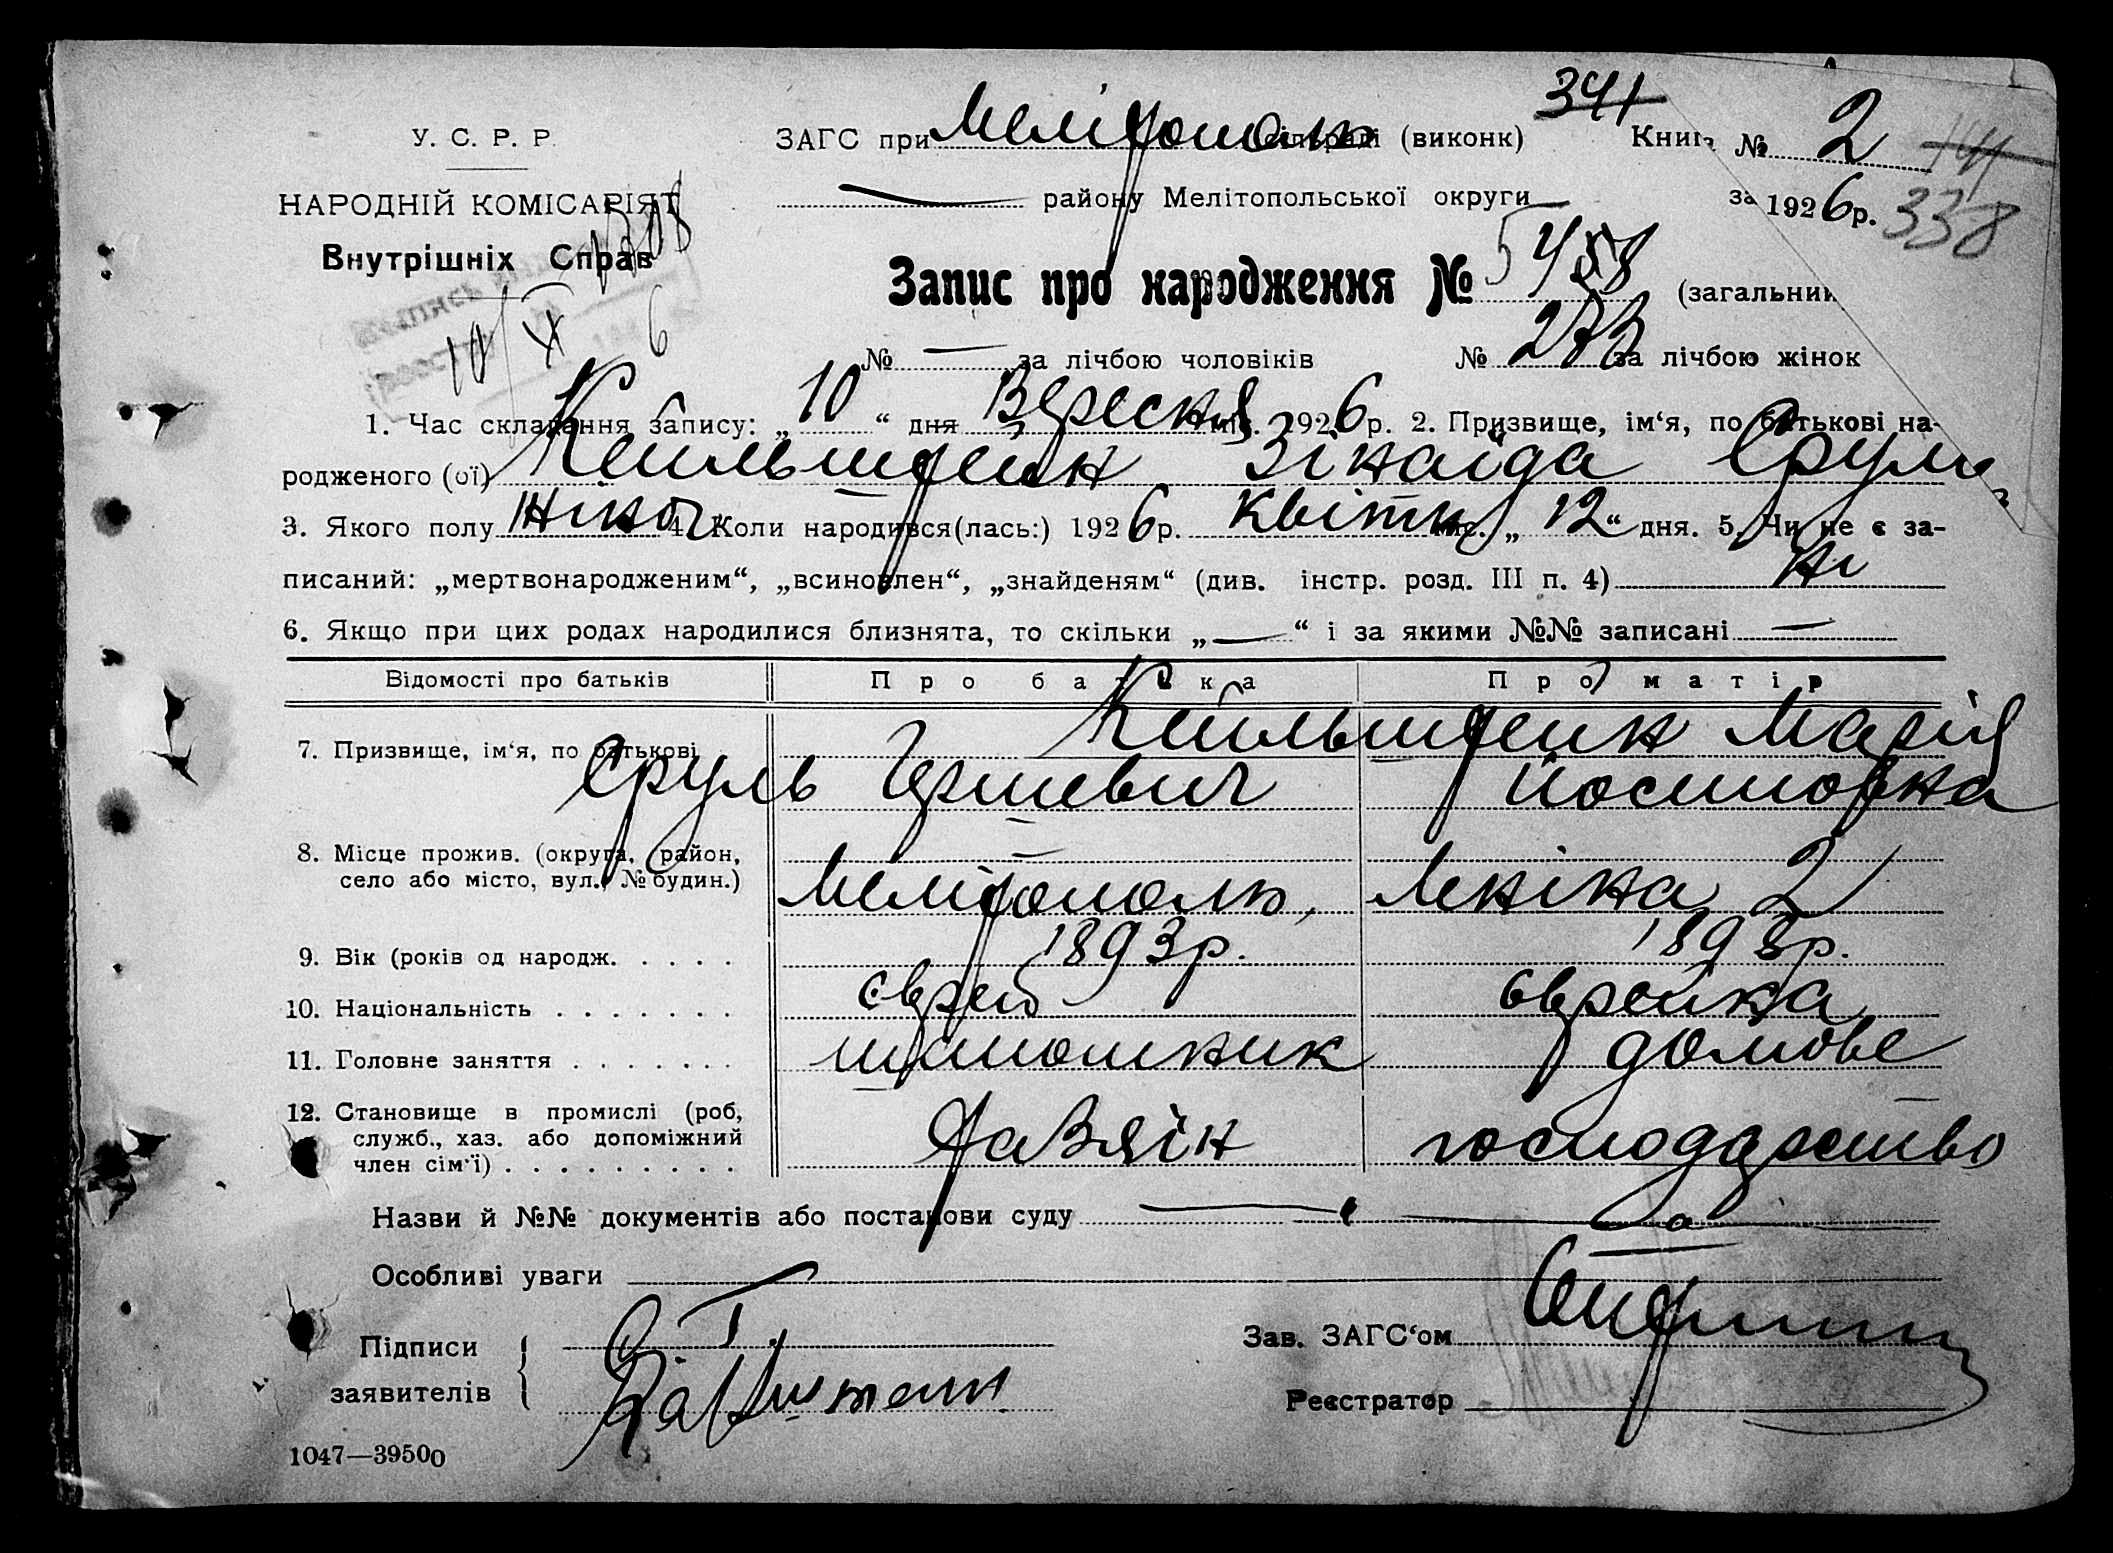 341
У. С. Р. Р. ЗАГС при Мелітополь сільраді (виконк) Книга № 2 141
НАРОДНІЙ КОМІСАРІЯТ — району Мелітопольської округи за 1926 р. 338
Внутрішніх Справ
Запис про народження № 5458 (загальний
10/IX 6
№ — за лічбою чоловіків № 273 за лічбою жінок
1. Час складання запису: „10“ дня Вересня міс. 1926 р. 2. Призвище, ім‘я, по батькові на-
родженого (ої) Кейльштейн Зінаїда Срулів
3. Якого полу жіноч. 4. Коли народився(лась:) 1926 р. Квітня міс. „12“ дня. 5. Чи не є за-
писаний: „мертвонародженим“, „всиновлен“, „знайденям“ (див. інстр. розд. III п. 4) ні
6. Якщо при цих родах народилися близнята, то скільки „—“ і за якими №№ записані —
Відомості про батьків Про батька Про матір
Кейльштейн Марія
7. Призвище, ім‘я, по батькові
Сруль Гершевич Йосиповна
8. Місце прожив. (округа, район,
село або місто, вул., № будин.) Мелітополь, Леніна 2
9. Вік (років од народж. . . . . 1893 р. 1893 р.
10. Національність . . . . . . . єврей єврейка
11. Головне заняття . . . . . . . домове
12. Становище в промислі (роб,
служб., хаз. або допоміжний
член сім‘ї) . . . . . . . . . господарство
Назви й №№ документів або постанови суду —
Особливі уваги
Підписи
заявителів
Зав. ЗАГС‘ом
Реєстратор
1047—39500